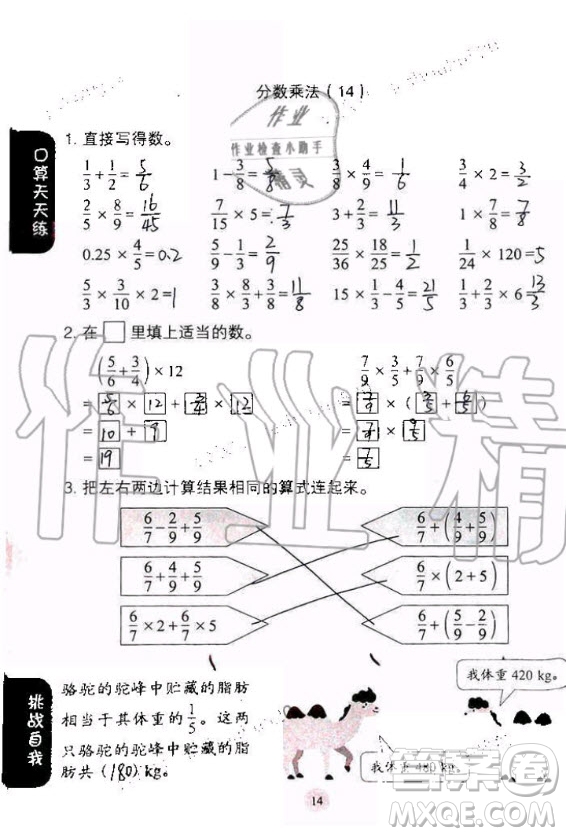 分数乘法（14）
作业
作业检查小助手
精灵
口算天天练
1. 直接写得数。
1/3 + 1/2 = 5/6  1 − 3/8 = 5/8  3/8 × 4/9 =  3/4 × 2 = 3/2
2/5 × 8/9 = 16/45  7/15 × 5 = 7/3  3 + 2/3 = 11/3  1 × 7/8 = 7/8
0.25 × 4/5 = 0.2  5/9 − 1/3 = 2/9  25/36 × 18/25 = 1/2  1/24 × 120 = 5
5/3 × 3/10 × 2 = 1  3/8 × 8/3 + 3/8 = 11/8  15 × 1/3 − 4/5 = 21/5  1/3 + 2/3 × 6 = 13/3
2. 在□里填上适当的数。
(5/6 + 3/4) × 12  7/9 × 3/5 + 7/9 × 6/5
= 5/6 × 12 + 3/4 × 12  = 7/9 × (3/5 + 6/5)
= 10 + 9  = 7/9 × 9/5
= 19  = 7/5
3. 把左右两边计算结果相同的算式连起来。
6/7 − 2/9 + 5/9  6/7 + (4/9 + 5/9)
6/7 + 4/9 + 5/9  6/7 × (2 + 5)
6/7 × 2 + 6/7 × 5  6/7 + (5/9 − 2/9)
挑战自我
骆驼的驼峰中贮藏的脂肪
相当于其体重的1/5。这两
只骆驼的驼峰中贮藏的脂
肪共（180）kg。
我体重 420 kg。
我体重 480 kg。
14
作业精
答案圈
MXQE.COM